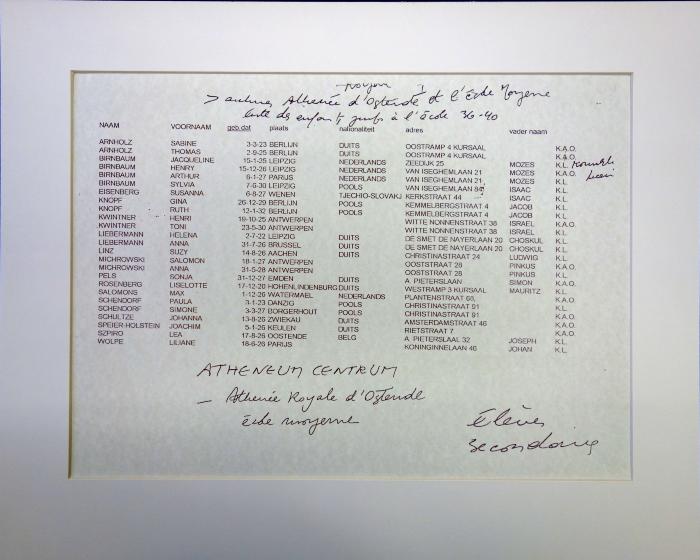 Royson
> archives Athenée d'Ostende et l'École Moyenne
liste des enfants juifs à l'école 36-40
NAAM VOORNAAM geb.dat plaats nationaliteit adres vader naam
ARNHOLZ SABINE 3-3-23 BERLIJN DUITS OOSTRAMP 4 KURSAAL K.A.O.
ARNHOLZ THOMAS 2-9-25 BERLIJN DUITS OOSTRAMP 4 KURSAAL K.A.O.
BIRNBAUM JACQUELINE 15-1-25 LEIPZIG NEDERLANDS ZEEDIJK 25 K.L.
BIRNBAUM HENRY 15-12-26 LEIPZIG NEDERLANDS VAN ISEGHEMLAAN 21 MOZES K.A.O.
BIRNBAUM ARTHUR 6-1-27 PARIJS NEDERLANDS VAN ISEGHEMLAAN 21 MOZES K.L.
BIRNBAUM SYLVIA 7-6-30 LEIPZIG POOLS VAN ISEGHEMLAAN 84 ISAAC K.L.
EISENBERG SUSANNA 6-8-27 WENEN TJECHIO-SLOVAKJ KERKSTRAAT 44 ISAAC K.L.
KNOPF GINA 26-12-29 BERLIJN POOLS KEMMELBERGSTRAAT 4 JACOB K.L.
KNOPF RUTH 12-1-32 BERLIJN POOLS KEMMELBERGSTRAAT 4 JACOB K.L.
KWINTNER HENRI 19-10-25 ANTWERPEN WITTE NONNENSTRAAT 38 ISRAEL K.A.O.
KWINTNER TONI 23-5-30 ANTWERPEN WITTE NONNENSTRAAT 38 ISRAEL K.L.
LIEBERMANN HELENA 2-7-22 LEIPZIG DUITS DE SMET DE NAYERLAAN 20 CHOSKUL K.L.
LIEBERMANN ANNA 31-7-26 BRUSSEL DUITS DE SMET DE NAYERLAAN 20 CHOSKUL K.L.
LINZ SUZY 14-8-26 AACHEN DUITS CHRISTINASTRAAT 24 LUDWIG K.L.
MICHROWSKI SALOMON 18-1-27 ANTWERPEN OOSTSTRAAT 28 PINKUS K.A.O.
MICHROWSKI ANNA 31-5-28 ANTWERPEN OOSTSTRAAT 28 PINKUS K.L.
PELS SONJA 31-12-27 EMDEN DUITS A. PIETERSLAAN SIMON K.A.O.
ROSENBERG LISELOTTE 17-12-20 HOHENLINDENBURG DUITS WESTRAMP 3 KURSAAL MAURITZ K.L.
SALOMONS MAX 1-12-26 WATERMAEL NEDERLANDS PLANTENSTRAAT 68, K.A.O.
SCHENDORF PAULA 3-1-23 DANZIG POOLS CHRISTINASTRAAT 91 K.L.
SCHENDORF SIMONE 3-3-27 BORGERHOUT POOLS CHRISTINASTRAAT 91 K.L.
SCHULTZE JOHANNA 13-8-26 ZWIEKAU DUITS AMSTERDAMSTRAAT 46 K.A.O.
SPEIER-HOLSTEIN JOACHIM 5-1-26 KEULEN DUITS RIETSTRAAT 7 K.A.O.
SZPIRO LEA 17-8-26 OOSTENDE BELG A. PIETERSLAAL 32 JOSEPH K.L.
WOLPE LILIANE 18-6-26 PARIJS KONINGINNELAAN 46 JOHAN K.L.
ATHENEUM CENTRUM
– Athenée Royale d'Ostende
école moyenne
Élèves
Secondaire